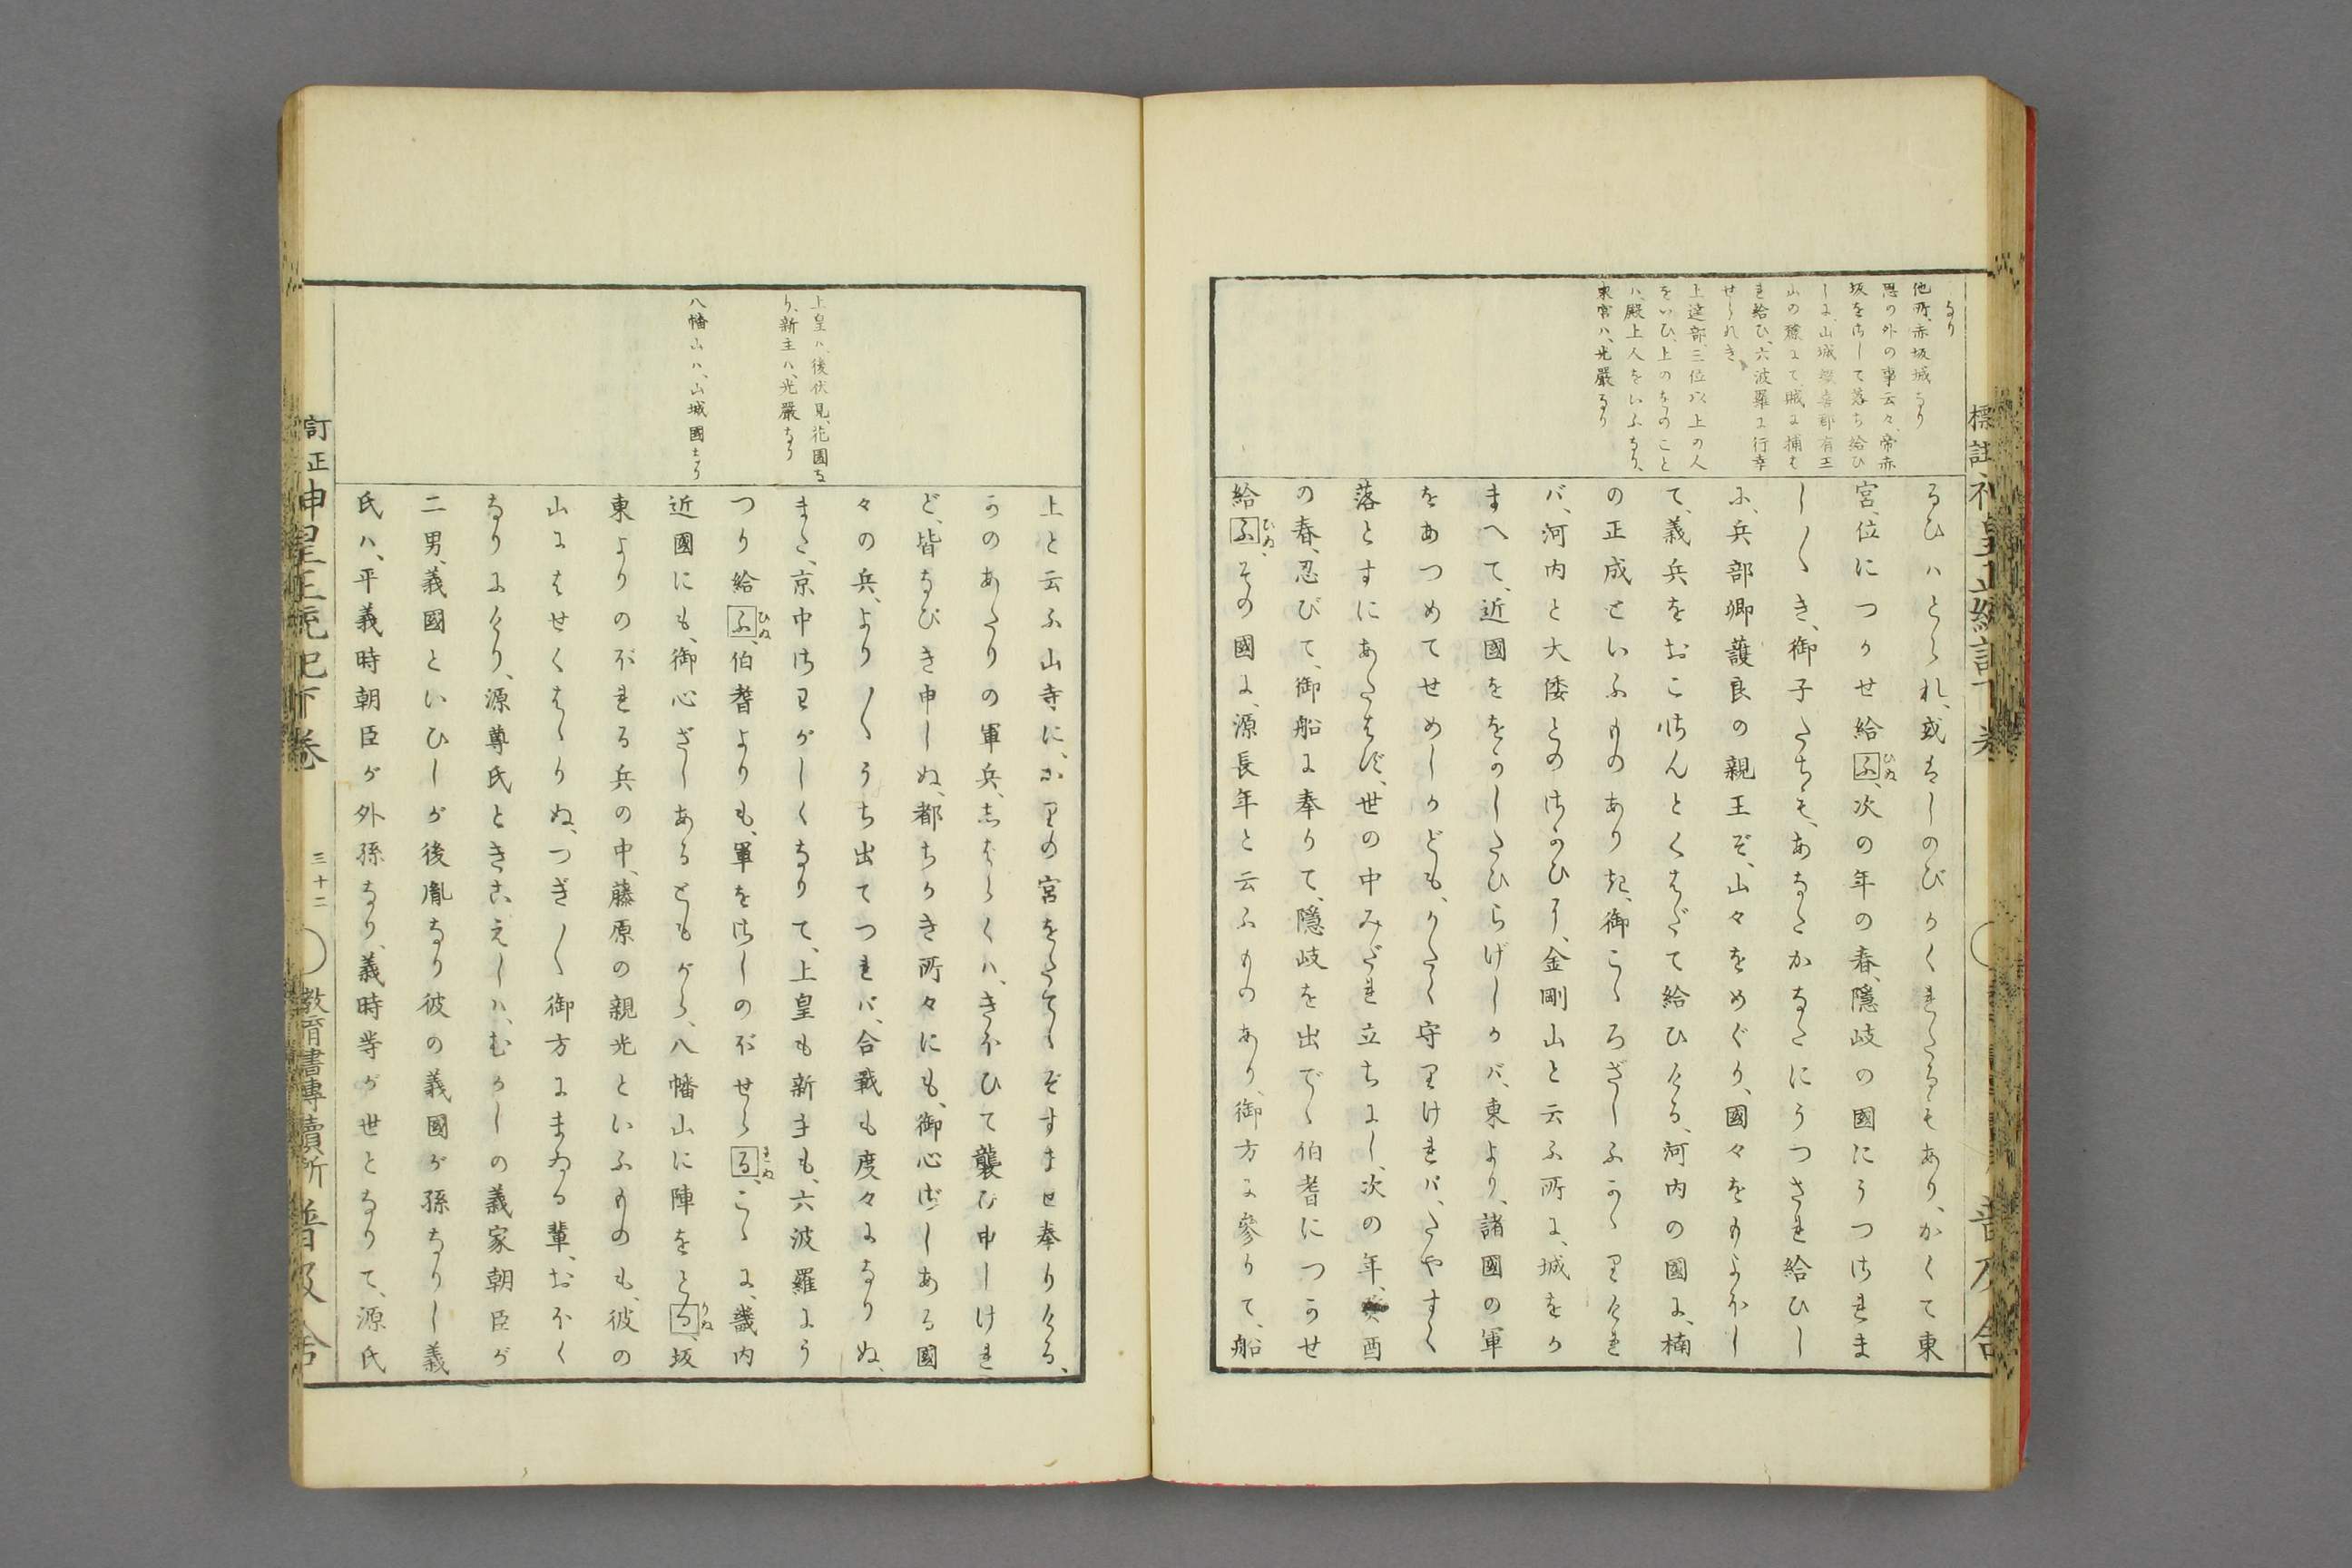 標註神皇正統記下巻
普及舍
なり
他所、赤坂城なり
思の外の事云々、帝赤
坂を御して落ち給ひ
しに、山城綴喜郡有王
山の麓にて、賊に捕は
れ給ひ、六波羅に行幸
せられき
上達部、三位以上の人
をいひ、上のをのこと
ハ、殿上人をいふなり、
東宮ハ、光嚴なり
るひハとられ、或はしのびかくれたるもあり、かくて東
宮、位につかせ給ふ(ひぬ)、次の年の春、隱岐の國にうつらせま
し〱き、御子たちも、あなたかなたにうつされ給ひし
に、兵部卿護良の親王ぞ、山々をめぐり、國々をもよほし
て、義兵をおこさんとくはだて給ひける、河内の國に、楠
の正成といふものありき、御こゝろざしふかゝりけれ
バ、河内と大倭とのさかひに、金剛山と云ふ所に、城をか
まへて、近國ををかしたひらげしかバ、東より、諸國の軍
をあつめてせめしかども、かたく守りけれバ、たやすく
落とすにあたはず、世の中みだれ立ちにし、次の年、癸酉
の春、忍びて、御船に奉りて、隱岐を出でゝ伯耆につかせ
給ふ(ひぬ)、その國に、源長年と云ふものあり、御方に參りて、船
上皇ハ、後伏見、花園な
り、新主ハ、光嚴なり
八幡山ハ、山城國なり
上と云ふ山寺に、かりの宮をたてゝぞすませ奉りける、
かのあたりの軍兵、志ばらくハ、きほひて襲ひ申しけれ
ど、皆なびき申しぬ、都ちかき所々にも、御心ざしある國
々の兵、より〱うち出てつれバ、合戰も度々になりぬ、
また、京中さわがしくなりて、上皇も新主も、六波羅にう
つり給ふ(ひぬ)、伯耆よりも、軍をさしのぼせらる(れぬ)、こゝに、畿内
近國にも、御心ざしあるともがら、八幡山に陣をとる(りぬ)、坂
東よりのぼれる兵の中、藤原の親光といふものも、彼の
山にはせくはゝりぬ、つぎ〱御方にまゐる輩、おほく
なりにけり、源尊氏ときこえしハ、むかしの義家朝臣が
二男、義國といひしが後胤なり彼の義國が孫なりし義
氏ハ、平義時朝臣が外孫なり、義時等が世となりて、源氏
訂正神皇正統記下巻
三十二
教育書專賣所
普及舍